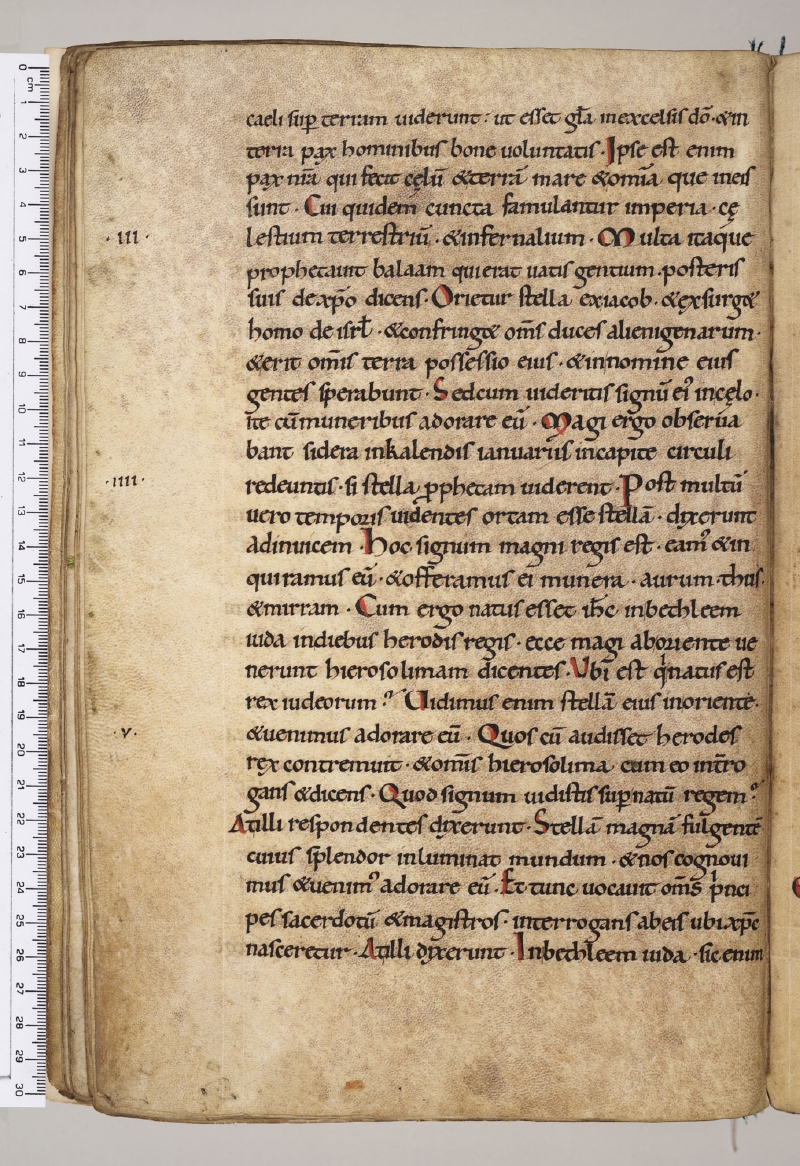 caeli sup̄ terram uiderunt: ut esset gl̄a inexcelsis dō·&in
terra pax hominibus bone uoluntatis·Ipse est enim
pax nr̄a qui fecit cęlū &terrā mare &omīa que ineis
sunt· Cui quidem cuncta famulantur imperia·cę
·III· lestium terrestriū·&infernalium·Multa itaque
prophetauit balaam quierat uatis gentium·posteris
suis dexp̄o dicens·Orietur stella exiacob·&exsurg&
homo de isrl̄·&confring& om̄s duces alienigenarum·
&erit om̄is terra possessio eius·&innomine eius
gentes sperabunt·Sedcum uideritis signū ei' incęlo·
ite cūmuneribus adorare eū·Magi ergo obserua
bant sidera inkalendis ianuariis incapite circuli
·IIII· redeuntis·si stella p̄phetam uiderent·Post multū
uero temporis uidentes ortam esse stellā·dixerunt
adinuicem·Hoc signum magni regis est·eam' &in
quiramus eū·&offeramus ei munera·aurum·thus·
&mirram·Cum ergo natus esset ih̄c inbethleem
iuda indiebus herodis regis·ecce magi aboriente ue
nerunt hierosolimam dicentes·Vbi est qi natus est
rex iudeorum? Uidimus enim stellā eius inoriente·
·V· &uenimus adorare eū·Quos cū audisset herodes
rex contremuit·&om̄is hierosolima cum eo intro
gans &dicens·Quod signum uidistis sup̄ natū regem?
Atilli respondentes dixerunt·Stellā magnā fulgentē
cuius splendor inluminat mundum·&nos cognoui
mus &uenim' adorare eū·Et tunc uocauit om̄s p̄nci
pes sacerdotū &magistros·interrogans abeis ubi xp̄c
nasceretur·Atilli dixerunt·Inbethleem iuda·sic enim